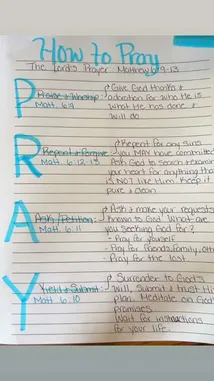 How to Pray
The Lord's Prayer Matthew 6:9-13
P
Praise & Worship:
Matt. 6:9
Give God thanks &
adoration for who He is
what He has done &
Will do
R
Repent & Forgive
Matt. 6:12,13
Repent for any sins
you MAY have committed
Ask God to search & examine
your heart for anything that
is NOT like Him. Keep it
pure & clean
A
Ask/Petition:
Matt. 6:11
Ask & make your requests
known to God. What are
you seeking God for?
- Pray for yourself
- Pray for friends, family, oth
- Pray for the lost
Y
Yield & Submit:
Matt. 6:10
Surrender to God's
Will, Submit & trust His
plan. Meditate on God
promises
Wait for instructions
for your life.